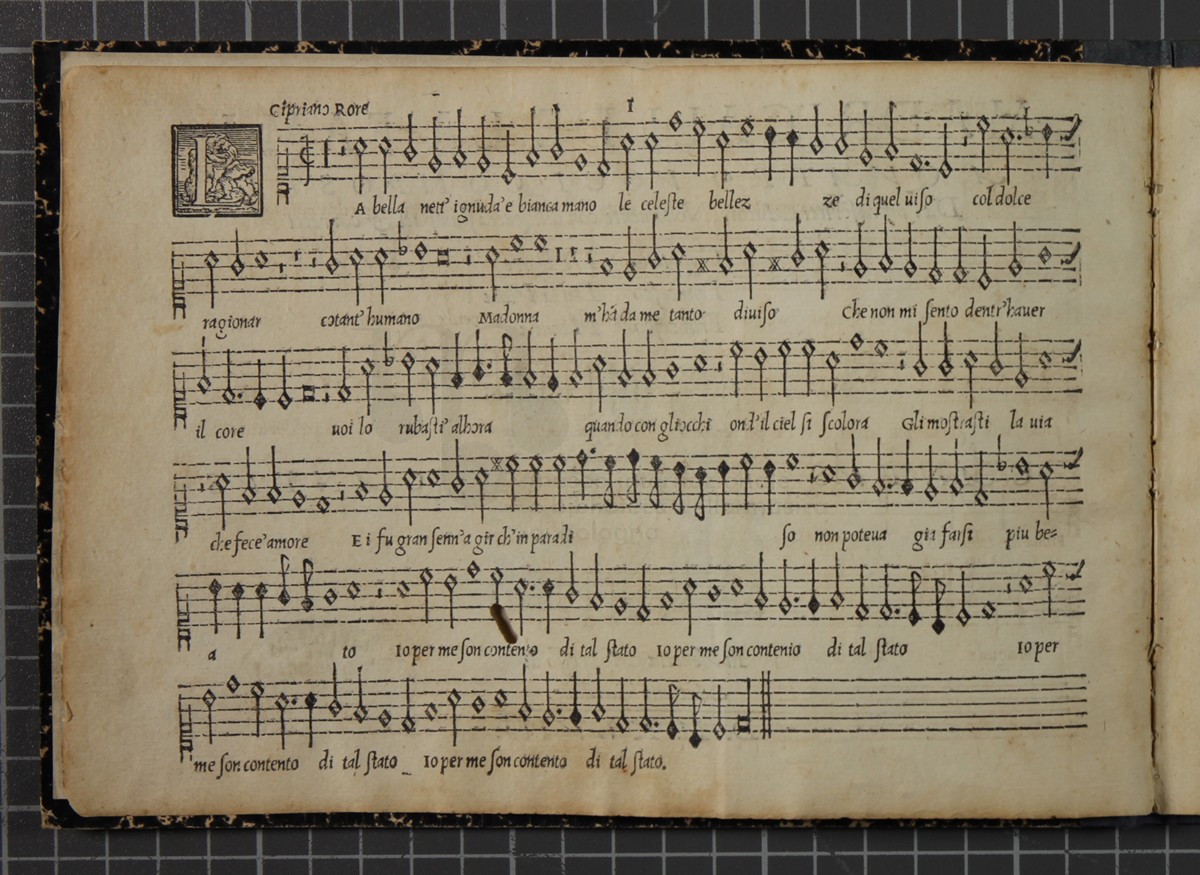 Cipriano Rore
I
LA bella nett' ignuda'e bianca mano le celeſte bellez ze di quel uiſo col dolce
ragionar cotant' humano Madonna m'hà da me tanto diuiſo Che non mi ſento dentr'hauer
il core uoi lo rubaſti' alhora quando con gliocchi ond'il ciel ſi ſcolora Gli moſtraſti la uia
che fece' amore E i fu gran ſenn'a gir ch'in paradi ſo non poteua gia farſi piu be=
a to Io per me ſon contento di tal ſtato Io per me ſon contento di tal ſtato Io per
me ſon contento di tal ſtato Io per me ſon contento di tal ſtato.